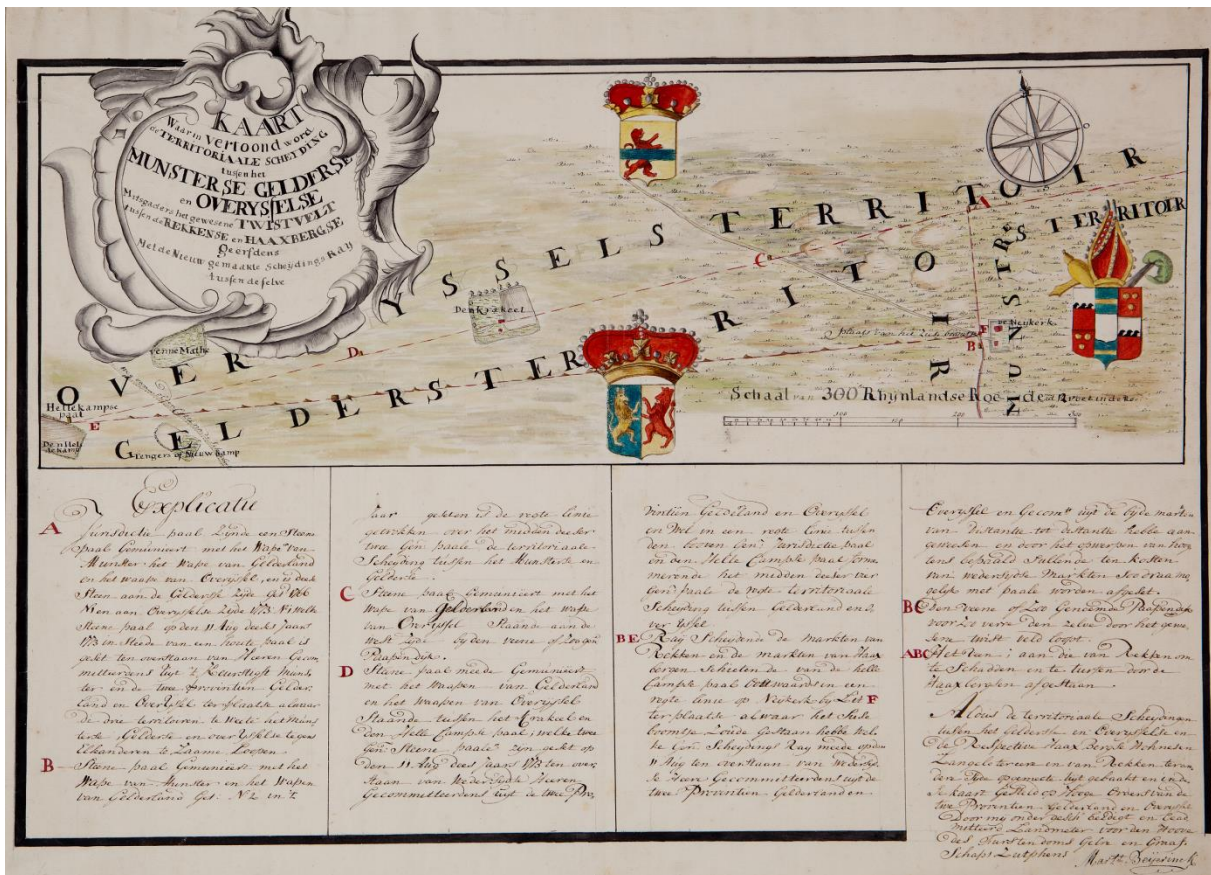 KAART
Waarin Vertoond word
de TERRITORIAALE SCHEYDING
tussen het
MUNSTERSE GELDERSE
en OVERYSSELSE
Mitsgaders het gewesene TWISTVELT
tussen de REKKENSE en HAAXBERGSE
Geerfdens
Met de Nieuw gemaakte Scheydings Ray
tussen de selve
OVERYSSELS TERRITOIR
GELDERS TERRITOIR
MUNSTERS TERRITOIR
Den Krakeel
venne Mathe
Hellekampse
paal
Den Helle
de Kamp
Tengers of Nieuw kamp
Nieykerk
A
B
C
D
E
F
Schaal van 300 Rhynlandse Roeden
100
200
300
Explicatie
A Jurisdictie paal Zynde een Steene
paal Gemunieert met het Wape van
Munster het Wape van Gelderland
en het waape van Overyssel, en is deese
Steen aan de Gelderse Zyde Get 1766
N1 en aan Overysselse Zyde 1773 N1 welke
Steene paal op den 11 Aug deeses Jaars
1773 in Steede van een houte paal is
geset ten overstaan van Heeren Gecom
mitteerdens uyt 't Keurstift Muns
ter en de twee Provintien Gelder
land en Overyssel ter plaatse alwaar
de drie territoiren te weete het Muns
terse Gelderse en overysselse tegens
Elkanderen te Zaame Loopen
B Steene paal Gemunieert met het
Wape van Munster en het Wapen
van Gelderland Get. N2 in 't
Jaar geseten is de regte linie
getrokken over het midden deeser
twee Gen: paale de territoriaale
Scheyding tussen het Munsterse en
Gelderse.
C Steene paal Gemunieert met het
Wape van Gelderland en het wape
van Overyssel Staande aan de
west Zyde by den veene of Loogen
Paapendyk.
D Steene paal meede Gemunieert
met het Waapen van Gelderland
en het Waapen van Overyssel
Staande tussen het Krakeel en
den Helle Campse paal, welke twee
Gen: Steene paale Zyn geset op
Den 11 Aug deeses jaars 1773 ten over
Staan van Wedersydse Heeren
Gecommitteerdens uyt de twee Pro
vintiën Gelderland en Overyssel
en Wel in een regte Linie tussen
den eersten Gen: Jurisdictie paal
en den Helle Campse paal forme
merende het midden deeser vier
Gen: paale de regte territoriaale
Scheyding tussen Gelderland en O
ver Yssel
BE Ray Scheydende de Markten van
Rekken en de markten van Haax
bergen Schietende van de helle
Campse paal Oostwaards in een
regte linie op Nijkerk by Litt F
ter plaatse alwaar het Siese
boomtje Loude Gestaan hebbe Wel
ke Gen: Scheydings Ray meede op den
11 Aug ten overstaan van Wedersyd
se Heere Gecommitteerdens uyt de
twee Provintien Gelderland en
Overyssel en Gecomt uyt de byde markten
van distantie tot distantie hebbe aan
geweesen en door het opwerpen van hoo
tens bepaald Sullende ten kosten
van wedersydse Markten Soo draa mo
gelyk met paale worden afgeset.
BC Den veene of Loo Genoemde Paapendyk
voor Zo verre den Zelve door het gewe
sene twist veld loopt.
ABC Het Veen: aan die van Rekken om
te Schadden en te turfen door de
Haaxbergsen afgestaan
Aldus de territoriaale Scheydingen
tussen het Gelderse en Overysselse en
de Respective Haaxbergse
en van Rekken
de kaart Gesteld op Hooge Ordres van de
twe Provintien Gelderland en Overyssel
Door my onder gesch: beëdigt en Gead
mitteerd Landmeter voor den Hoove
des Furstendoms Gelre en Graaf
Schaps Zutphens
Marts. Beijerinck